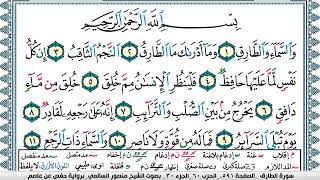 بِسْمِ اللَّهِ الرَّحْمَٰنِ الرَّحِيمِ
وَالسَّمَآءِ وَالطَّارِقِ ١ وَمَآ أَدْرَىٰكَ مَا الطَّارِقُ ٢ النَّجْمُ الثَّاقِبُ ٣ إِن كُلُّ
نَفْسٍ لَّمَّا عَلَيْهَا حَافِظٌ ٤ فَلْيَنظُرِ الْإِنسَٰنُ مِمَّ خُلِقَ ٥ خُلِقَ مِن مَّآءٍ
دَافِقٍ ٦ يَخْرُجُ مِنۢ بَيْنِ الصُّلْبِ وَالتَّرَآئِبِ ٧ إِنَّهُۥ عَلَىٰ رَجْعِهِۦ لَقَادِرٌ ٨
يَوْمَ تُبْلَى السَّرَآئِرُ ٩ فَمَا لَهُۥ مِن قُوَّةٍ وَلَا نَاصِرٍ ١٠ وَالسَّمَآءِ ذَاتِ الرَّجْعِ ١١
سورة الطارق - الصفحة ٥٩١ - الحزب ٦٠ - الجزء ٣٠ - بصوت الشيخ منصور السالمي - برواية حفص عن عاصم